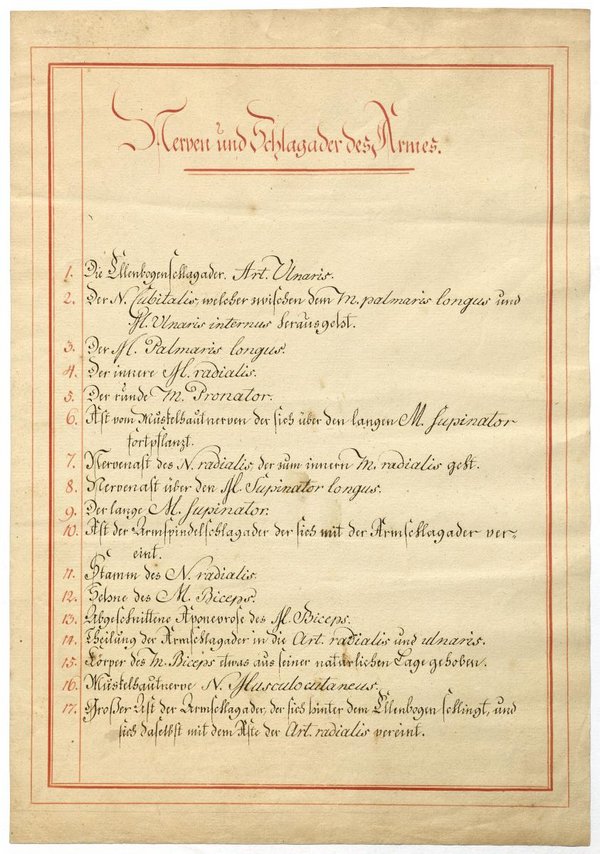 Nerven und Schlagader des Armes.
1. Die Ellenbogenschlagader. Art. Ulnaris.
2. Der N. Cubitalis, welcher zwischen dem M. palmaris longus und
M. Ulnaris internus herausgeht.
3. Der M. Palmaris longus.
4. Der innere M. radialis.
5. Der runde M. Pronator.
6. Ast vom Muskelhautnerven der sich über den langen M. Supinator
fortpflanzt.
7. Nervenast des N. radialis, der zum innern M. radialis geht.
8. Nervenast über den M. Supinator longus.
9. Der lange M. Supinator.
10. Ast der Armspindelschlagader der sich mit der Armschlagader ver-
eint.
11. Stamm des N. radialis.
12. Sehne des M. Biceps.
13. Abgeschnittene Aponevrose des M. Biceps.
14. Theilung der Armschlagader in die Art. radialis und ulnaris.
15. Körper des M. Biceps etwas aus seiner natürlichen Lage gehoben.
16. Muskelhautnerve N. Musculocutaneus.
17. Großer Ast der Armschlagader, der sich hinter dem Ellenbogen schlingt, und
sich daselbst mit dem Aste der Art. radialis vereint.